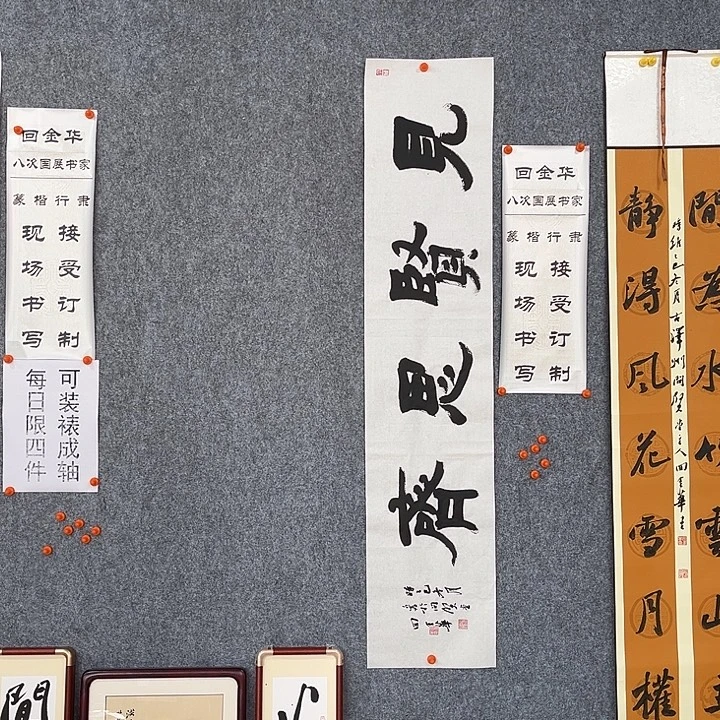 回金华
八次国展书家
篆楷行隶
接受订制
现场书写
可装裱成轴
每日限四件
見賢思齊
回金华
八次国展书家
篆楷行隶
接受订制
现场书写
間為水竹雲山主
静得風花雪月權
間